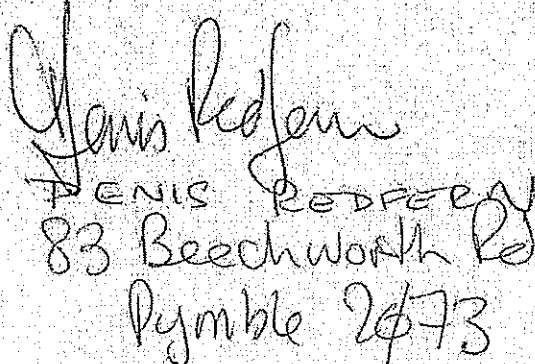 Denis Redfern
DENIS REDFERN
83 Beechworth Rd
Pymble 2073